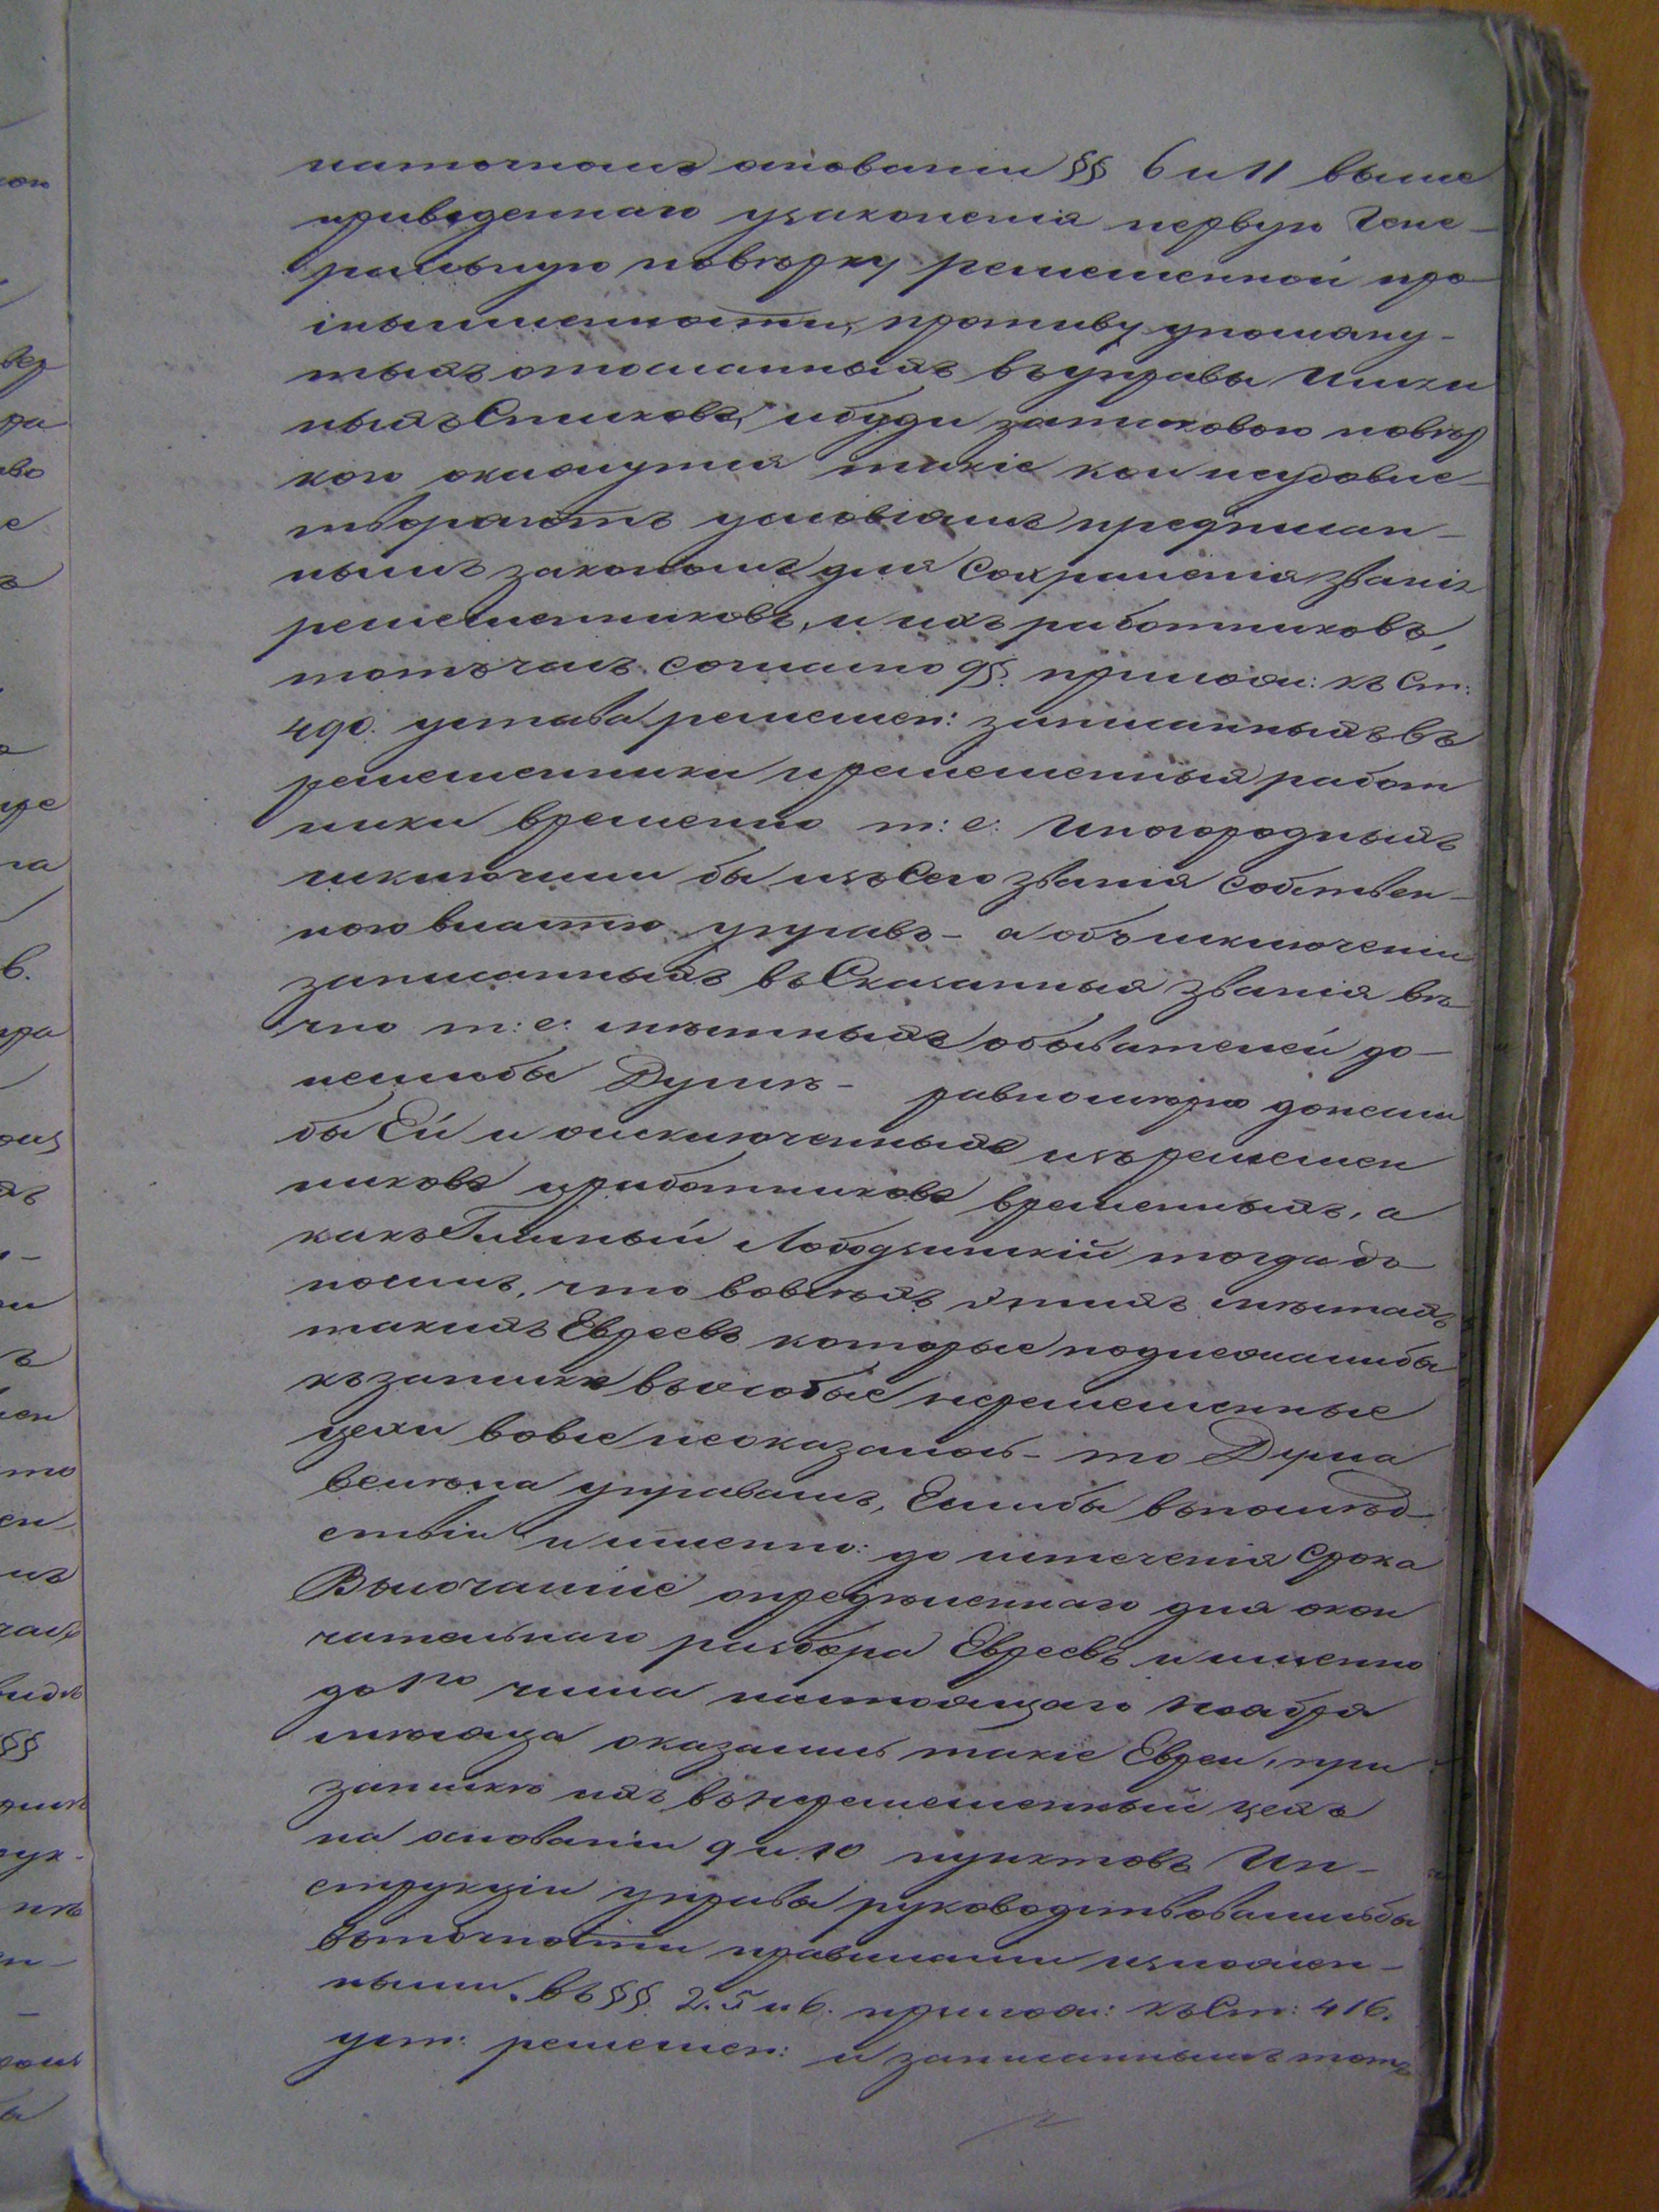 наточномъ основаніи §§ 6 и 11 выше
приведеннаго узаконенія первую Гене-
ральную повѣрку ремесленной про-
мышленности, противу упомяну-
тыхъ отосланныхъ въ управы имен
ныхъ Списковъ, и буди затаковою повѣр
кою окажутся такіе кои неудовле-
творяютъ условіямъ предписан-
нымъ закономъ для Сохраненія званія
ремесленниковъ, и ихъ работниковъ,
тотъчасъ согласно 9§. прилож: къ Ст:
490. устава ремеслен: записанныхъ въ
ремесленники и ремесленныя работ
ники временно т: е: Иногородныхъ
исключили бы изъ Сего званія Собствен-
ною властію управъ - а объ исключеніи
записанныхъ въ Сказанныя званія вѣ
чно т: е: мѣстныхъ обывателей до-
неслибы Думѣ - равномѣрно донесли
бы Ей и оисключенныхъ изъ ремеслен
никовъ и работниковъ временныхъ, а
какъ Гласный тогда до
носилъ, что вовсѣхъ мѣстахъ
такихъ Евреевъ которые подлежалибы
къ запискѣ въ особые неремесленные
цехи вовсе неоказалось - то Дума
велѣла управамъ, Еслибы въпослѣд-
ствіи и именно: до истеченія Срока
Высочайше опредѣленнаго для окон
чательнаго разбора Евреевъ и именно
до 1го числа настоящаго Ноября
мѣсяца оказались такіе Евреи, при
запискѣ ихъ въ неремесленный цехъ
на основаніи 9 и 10 пунктовъ Ин-
струкціи управы руководствовались бы
въточности правилами изложен-
ными въ §§ 2. 5 и 6. прилож: къ Ст: 416.
уст: ремеслен: и записаннымъ тотъ